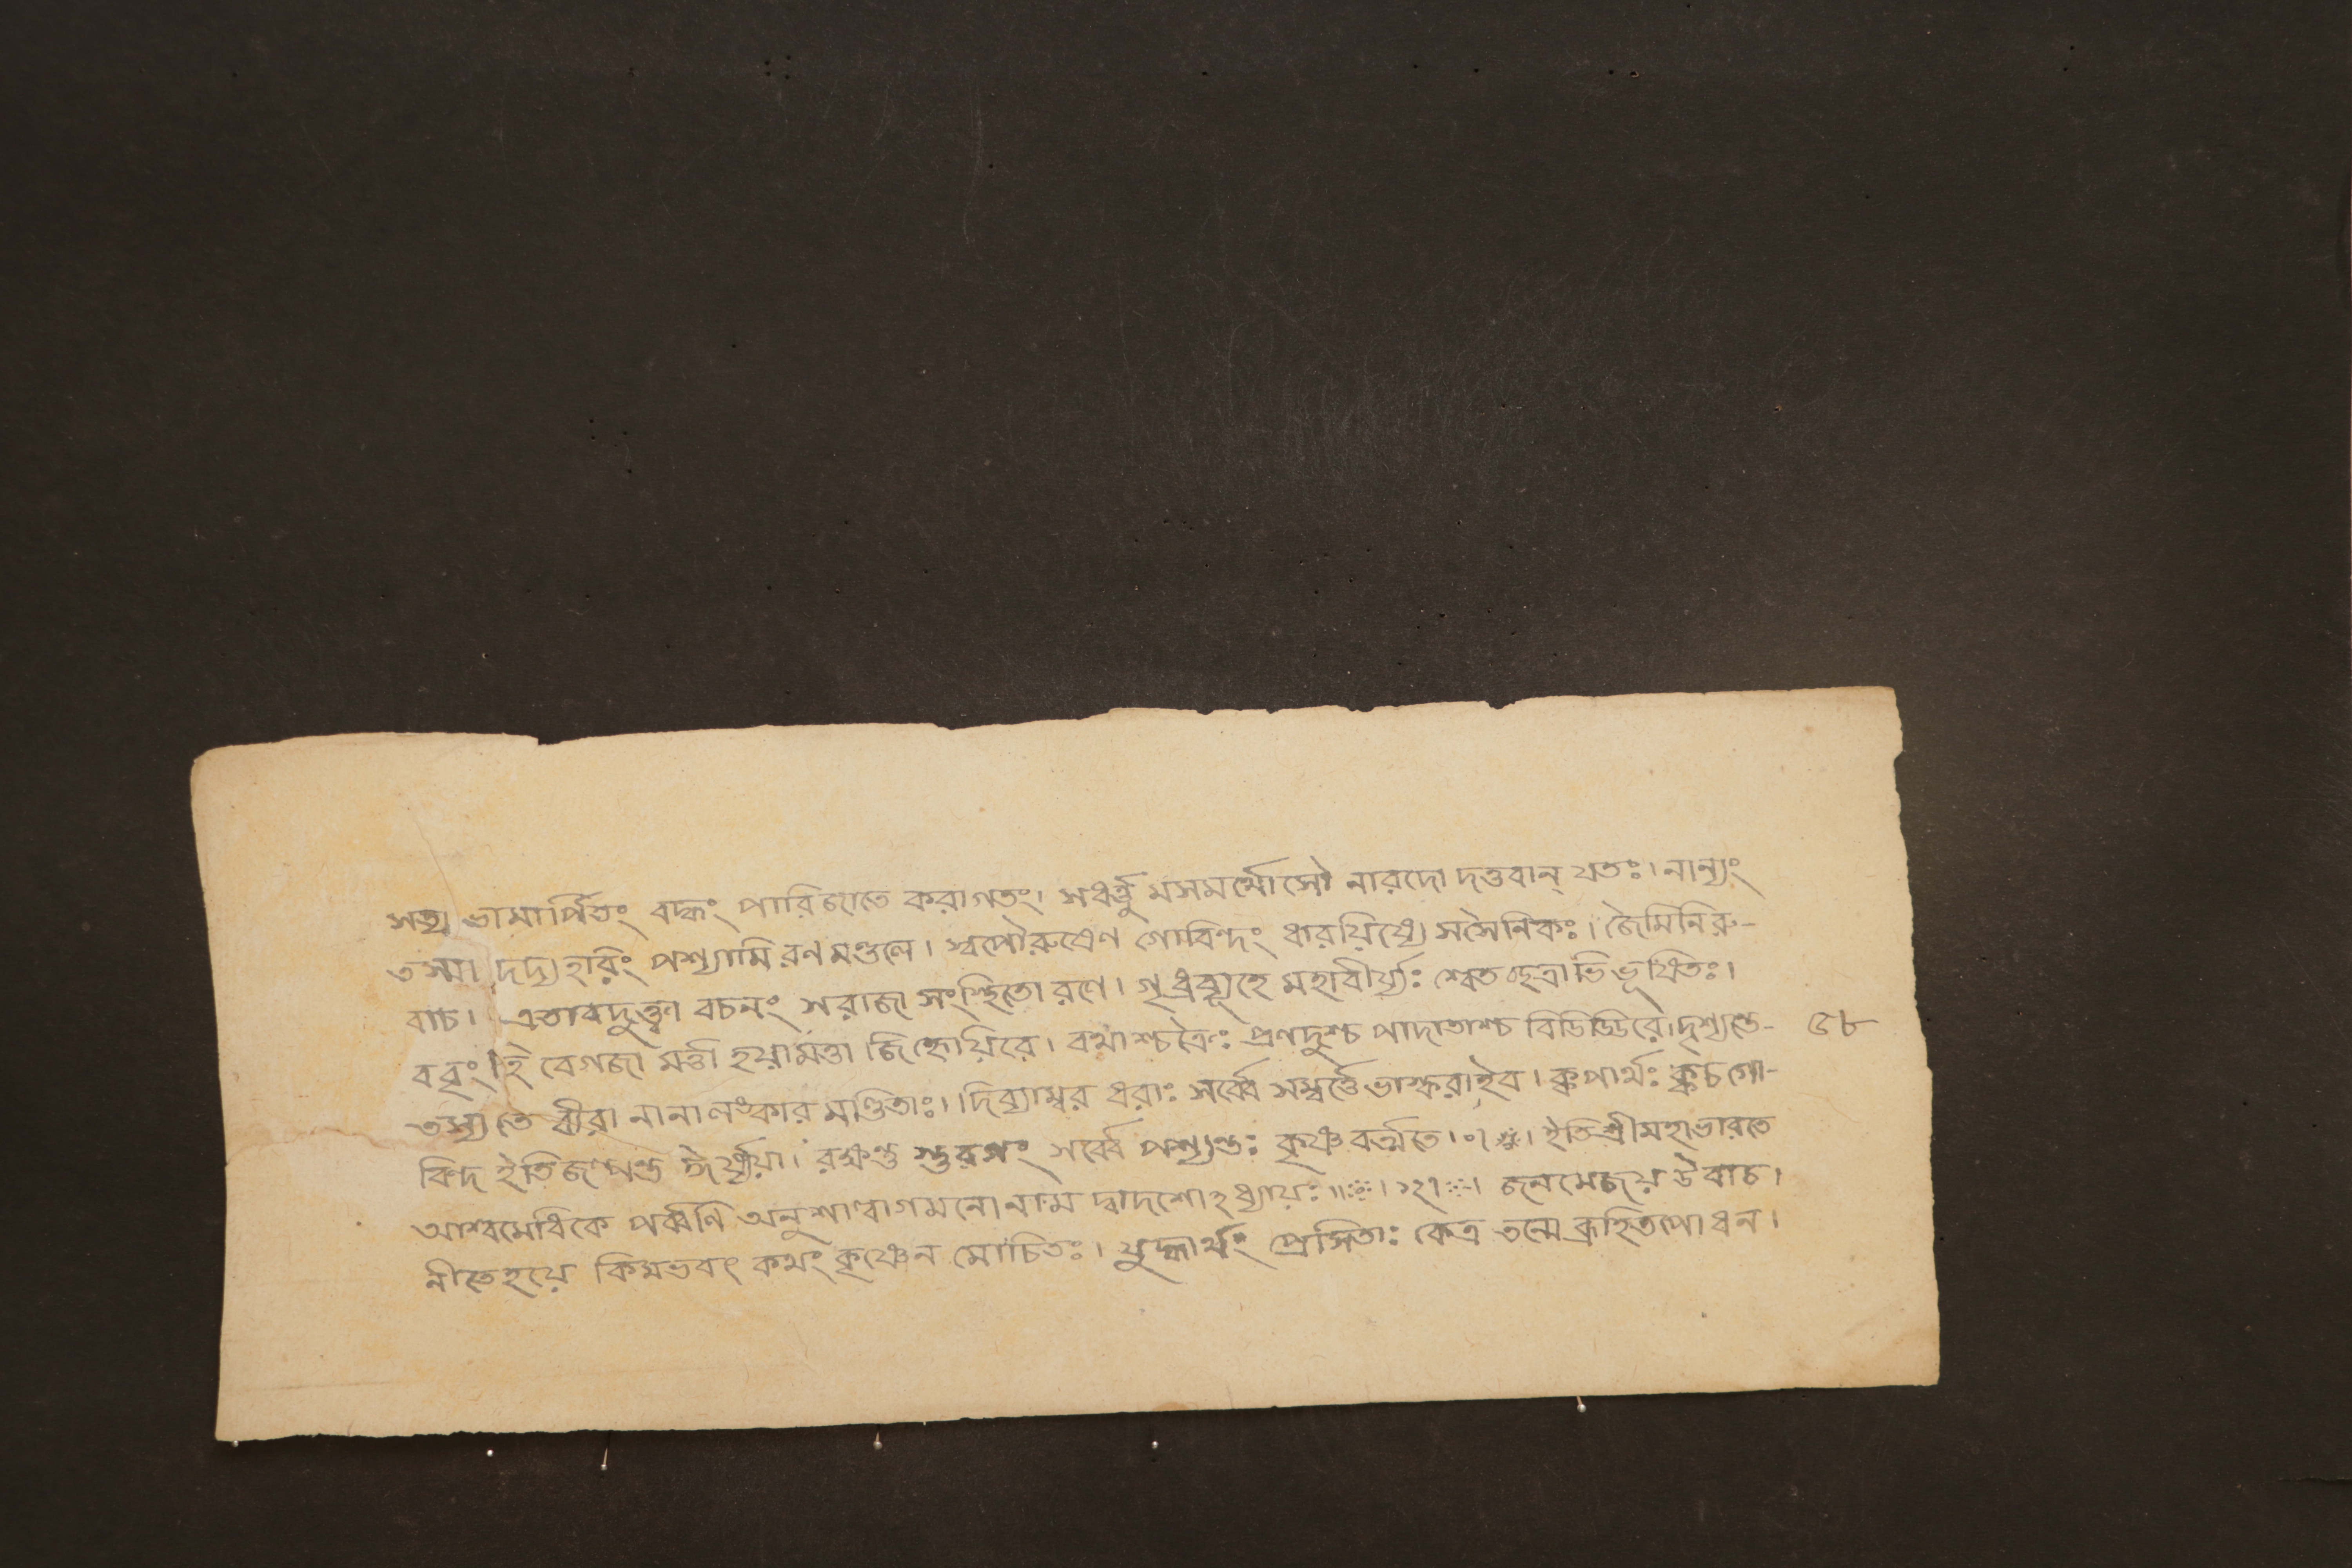 সত্য ভামার্পিতং বদ্ধং পারিজাতে করাগতং। সধর্ত্তু মসমর্থোসৌ নারদো দত্তবান্ যতঃ। নান্যং
তস্মা দদ্য হরিং পশ্যামি রণ মণ্ডলে। স্বপৌরুষেণ গোবিন্দং ধারয়িষ্যে সসৈনিকঃ। জৈমিনিরু-
বাচ। এতাবদুক্ত্বা বচনং সরাজা সংস্থিতো রণে। গৃধ্রব্যূহে মহাবীর্য্যঃ শ্বেত ছত্রাভি ভূষিতঃ।
ববৃং হি বেগজা মত্তা হয়ামত্তা জিহ্রেয়িরে। রথাশ্চত্রৈঃ প্রণদুশ্চ পাদাতাশ্চ বিডিড্ডিরে। দৃশ্যন্তে- ৫৮
তস্যতে বীরা নানালঙ্কার মণ্ডিতাঃ। দিব্যাম্বর ধরাঃ সর্ব্বে সম্বর্ত্তে ভাস্করাইব। ক্বপার্থঃ ক্বচগো-
বিন্দ ইতিজল্পন্ত ঈর্ষ্যয়া। রক্ষন্তু স্তুরগং সর্ব্বে পশ্যন্তঃ কৃষ্ণ বর্ত্মতে। ০। ইতিশ্রীমহাভারতে
আশ্বমেধিকে পর্ব্বণি অনুশাল্বাগমনো নাম দ্বাদশোঽধ্যায়ঃ॥ ।১২। । জনমেজয় উবাচ।
নীতেহয়ে কিমভবৎ কথং কৃষ্ণেন মোচিতঃ। যুদ্ধার্থং প্রেসিতাঃ কেত্র তন্মে ব্রূহিতপোধন।